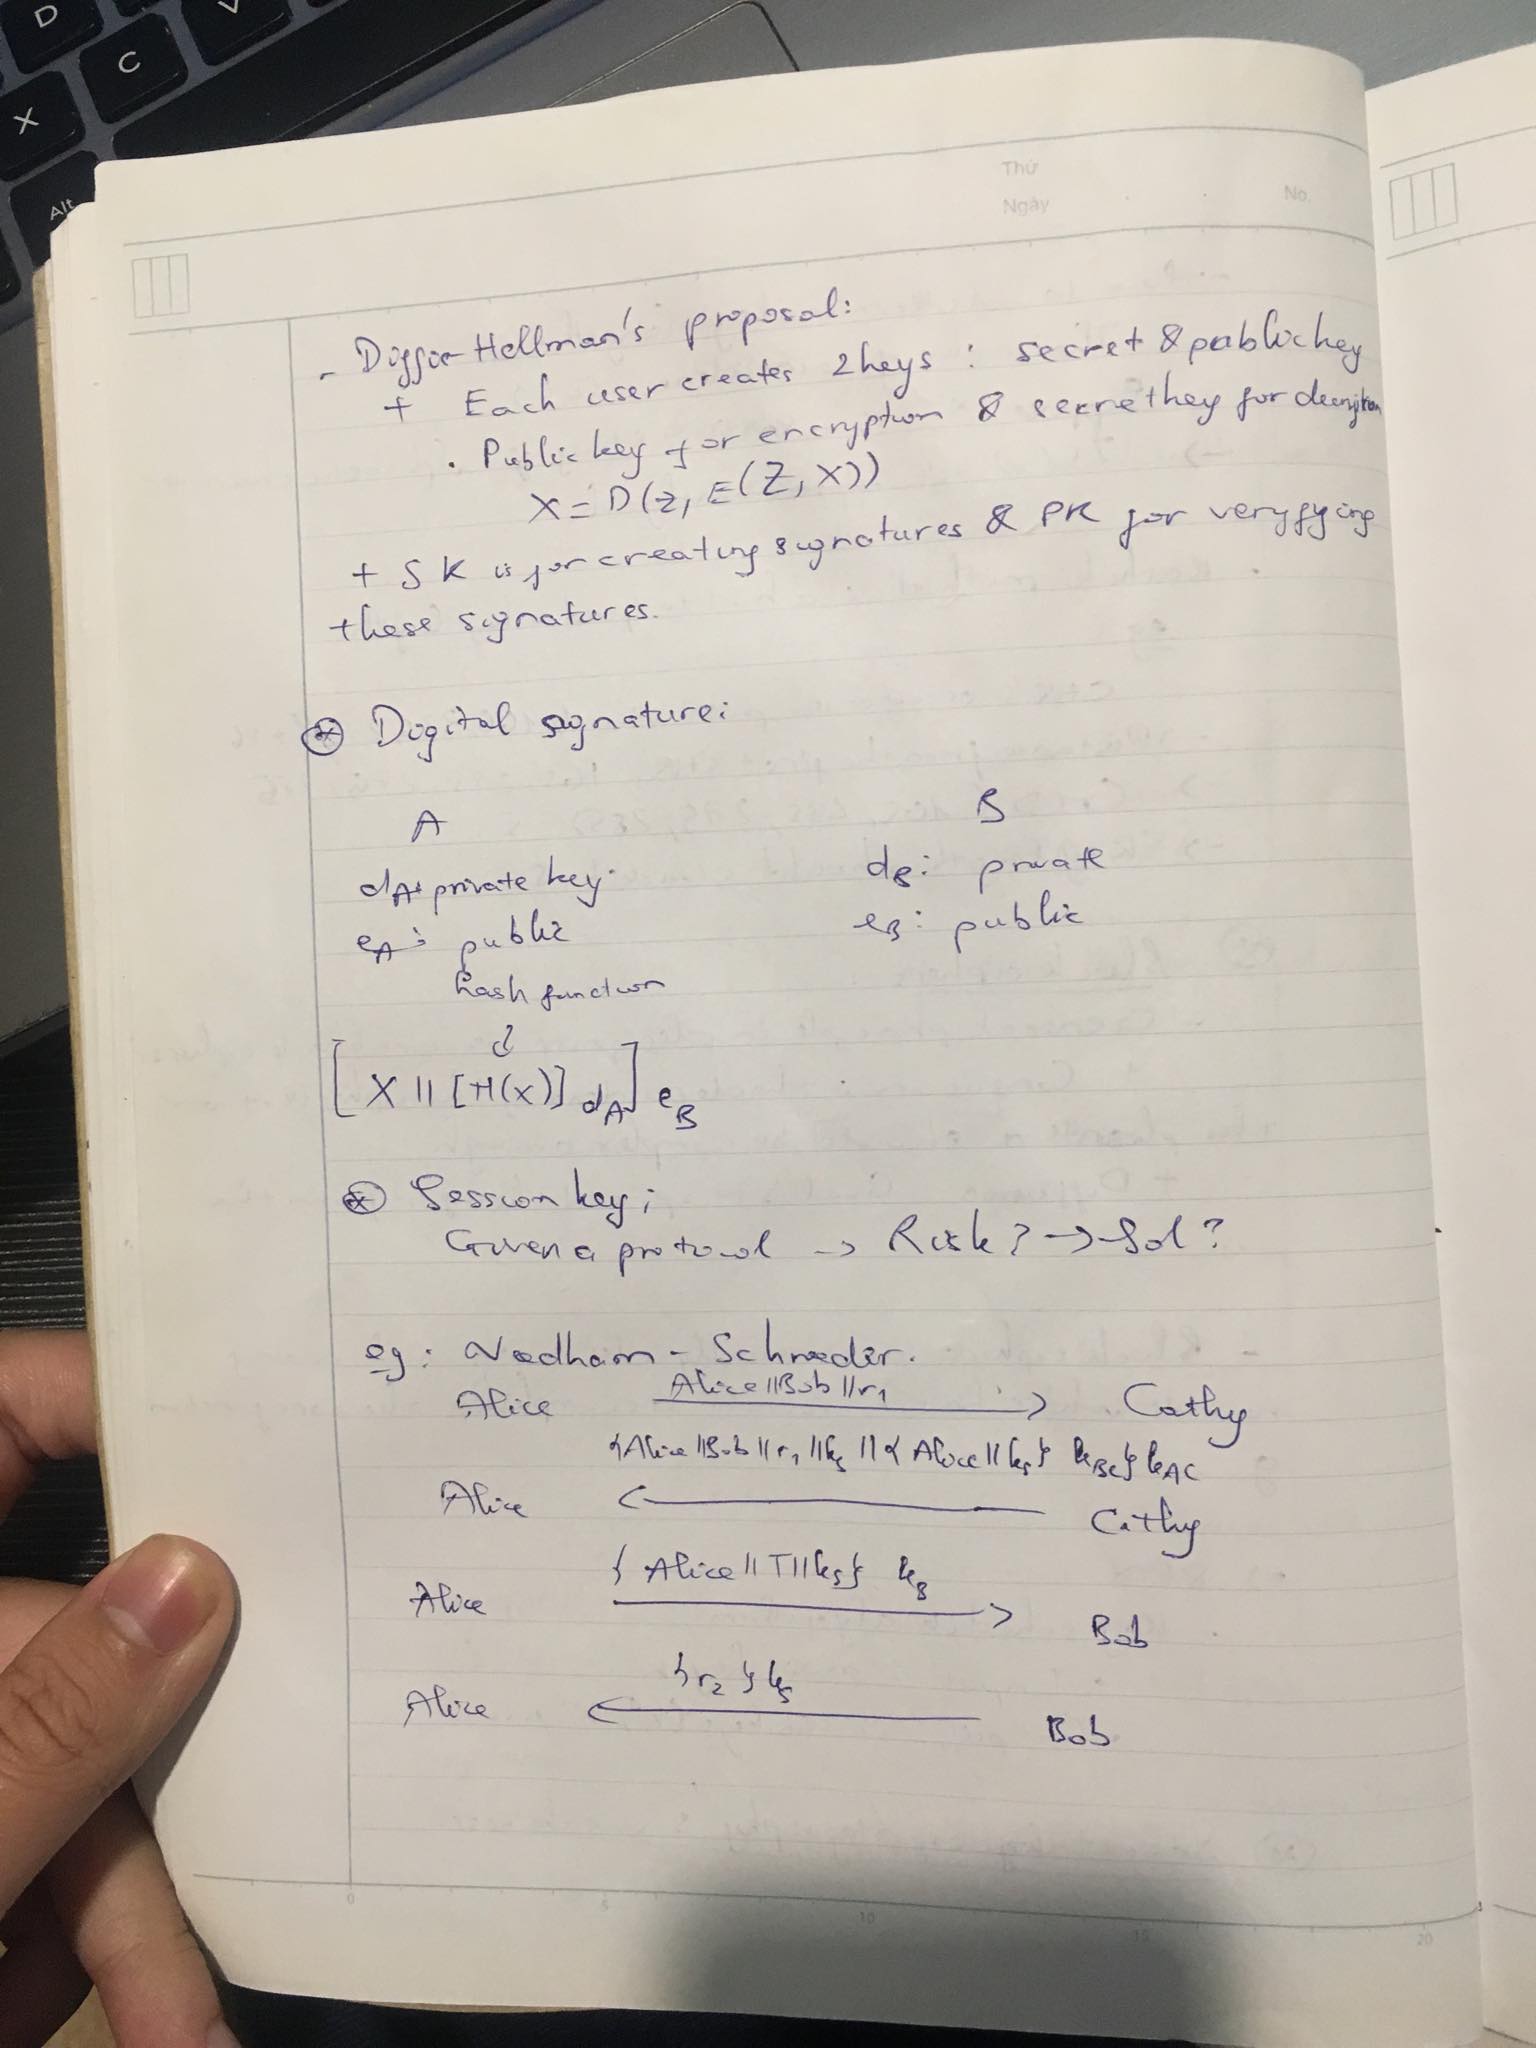 D
C
V
X
Alt
Thứ
Ngày
No.
- Diffie-Hellman's proposal:
+ Each user creates 2 keys : secret & public key
. Public key for encryption & secret key for decryption
X = D(z, E(Z, X))
+ SK is for creating signatures & PK for veryfying
these signatures.
⊛ Digital signature:
A B
dA: private key. dB: private
eA: public eB: public
hash function
↓
[X || [H(x)] dA] eB
⊛ Session key:
Given a protocol → Risk? → Sol?
eg: Needham - Schroeder.
Alice Alice || Bob || r1 → Cathy
{Alice || Bob || r1 || ks || {Alice || ks} kBC} kAC
Alice ← Cathy
{Alice || T || ks} kB
Alice → Bob
{r2} ks
Alice ← Bob
0 5 10 15 20